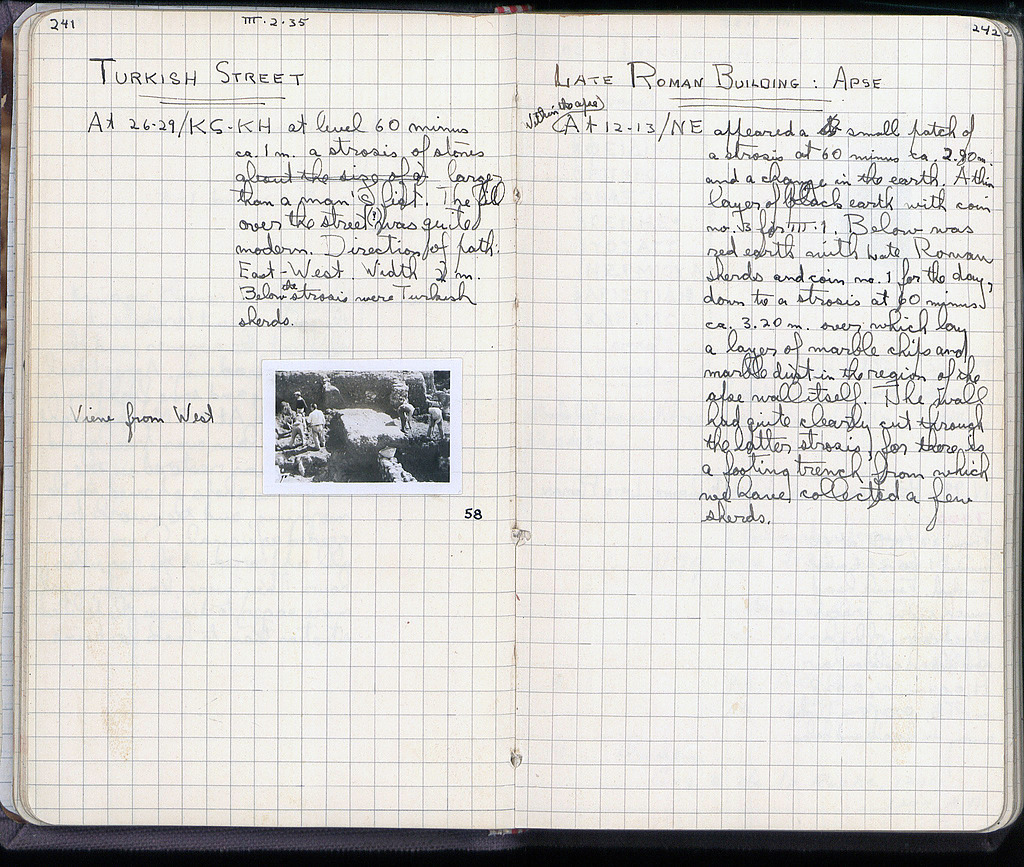 241
III.2.35
TURKISH STREET
At 26-29/KS-KH at level 60 minus
ca. 1 m. a strosis of stones
about the size of a larger
than a man's fist. The fill
over the street (?) was quite
modern. Direction of path:
East-West. Width 2 m.
Below the strosis were Turkish
sherds.
View from West
58
242
LATE ROMAN BUILDING: APSE
(within the apse)
At 12-13/NE appeared a small patch of
a strosis at 60 minus ca. 2.90 m.
and a change in the earth. A thin
layer of black earth with coin
no. 3 for III.1. Below was
red earth with Late Roman
sherds and coin no. 1 for the day,
down to a strosis at 60 minus
ca. 3.20 m. over which lay
a layer of marble chips and
marble dust in the region of the
apse wall itself. The wall
had quite clearly cut through
the latter strosis, for there is
a footing trench from which
we have collected a few
sherds.